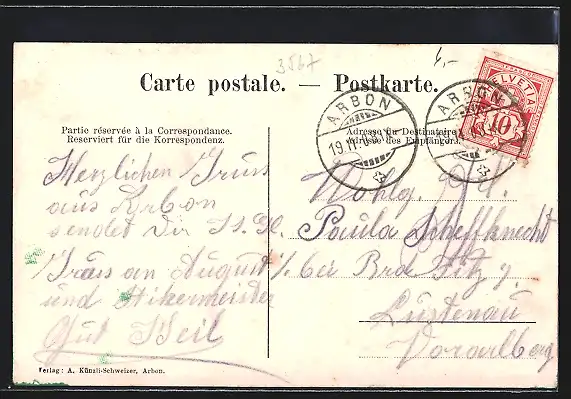 3567
4,-
Carte postale. — Postkarte.
HELVETIA
10
ARBON
19.VI.
ARBON
Partie réservée à la Correspondance.
Reserviert für die Korrespondenz.
Adresse du Destinataire
Adresse des Empfängers.
Herzlichen Gruss
aus Arbon
sendet Dir
Gruss an August
und
Gut Heil
Wohlg.
Paula Scheffknecht
bei
Lustenau
Vorarlberg
Verlag: A. Künzli-Schweizer, Arbon.